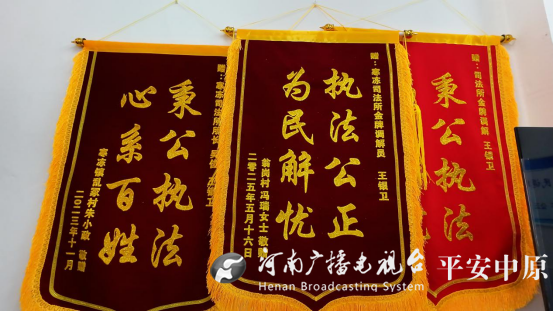 赠：枣冻司法所所长
秉公执法
心系百姓
枣冻镇 村朱小敏 敬赠
二〇二三年十一月
赠：枣冻司法所金牌调解员 王银卫
执法公正
为民解忧
翁岗村冯瑞女士 敬赠
二零二五年五月十六日
赠：司法所金牌调解 王银卫
秉公执法
河南广播电视台 平安中原
Henan Broadcasting System